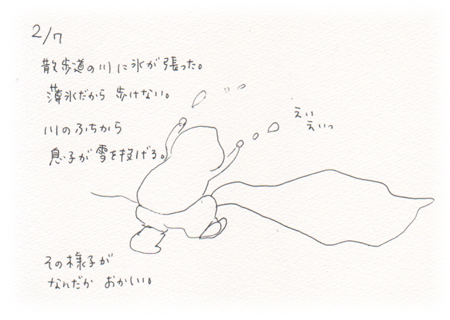 2/7
散歩道の川に氷が張った。
薄氷だから 歩けない。
川のふちから
息子が雪を投げる。
えい
えいっ
その様子が
なんだか おかしい。